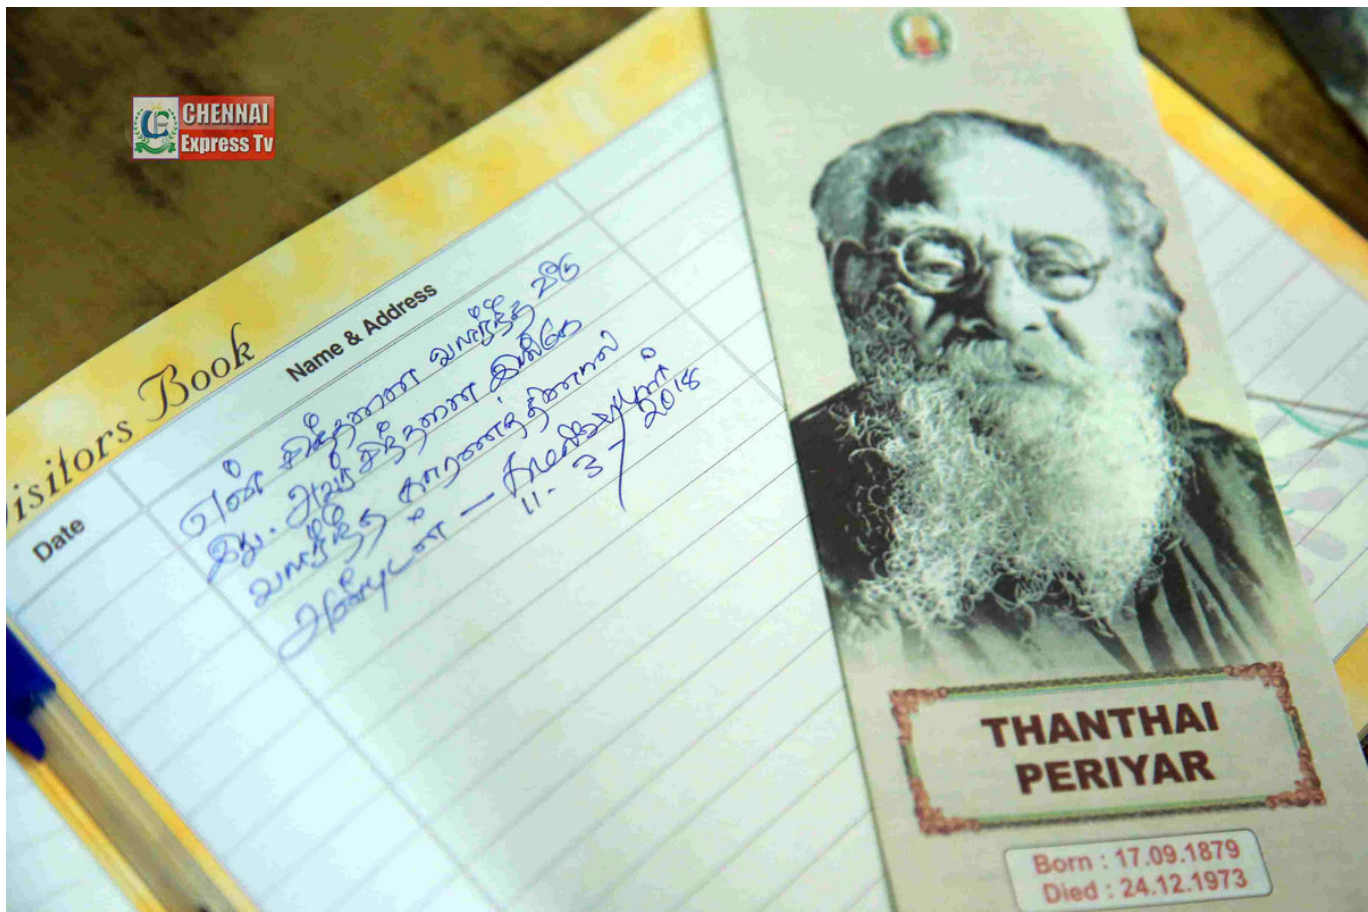 CHENNAI
Express Tv
isitors Book
Date
Name & Address
என் சிந்தனை வளர்ந்த வீடு
இது. அவர் சிந்தனை இங்கே
வளர்ந்த காரணத்தினால்
அன்புடன் — கமல்ஹாசன்
11-3-2018
THANTHAI
PERIYAR
Born : 17.09.1879
Died : 24.12.1973